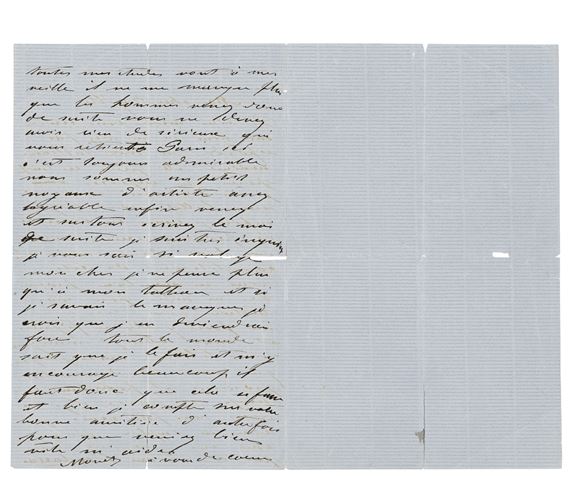 toutes mes etudes vont à mer
veille il ne me manque plus
que les hommes venez donc
de suite vous ne devez
avoir rien de sérieux qui
vous retient à Paris ici
c'est toujours admirable
nous sommes un petit
noyaux d'artiste assez
agréable enfin venez
et surtout écrivez le moi
de suite je suis très inquiet
je vous sais si
mon cher je ne pense plus
qu'à mon tableau et si
je savais le manquer je
crois que j'en deviendrai
fou tout le monde
sait que je le fais et m'y
encourage beaucoup il
faut donc que cela se fasse
et bien je compte sur votre
bonne amitié d'autrefois
pour que veniez bien
vite m'aider
Monet à vous de coeur